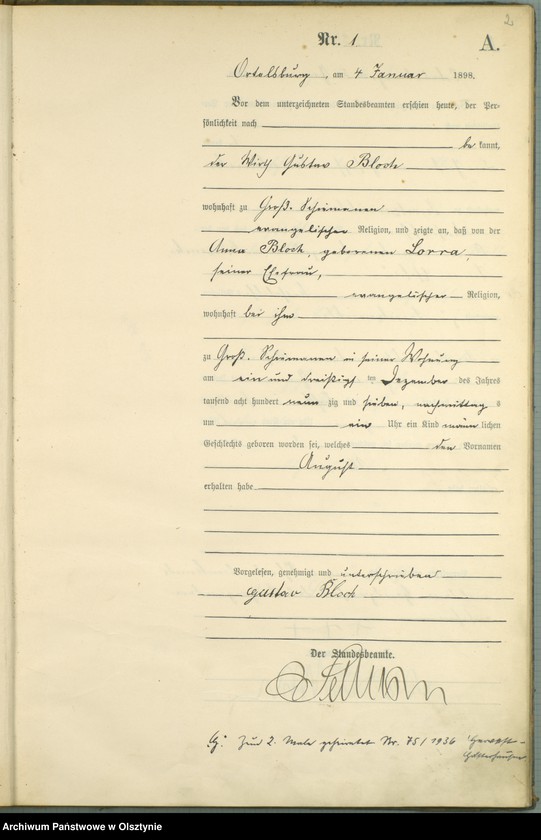 2
Nr. 1
A.
Ortelsburg, am 4 Januar 1898.
Vor dem unterzeichneten Standesbeamten erschien heute, der Per-
sönlichkeit nach
be kannt,
der Wirth Gustav Bloch
wohnhaft zu Groß. Schiemanen
evangelischer Religion, und zeigte an, daß von der
Anna Bloch, geborenen Lorra,
seiner Ehefrau,
evangelischer Religion,
wohnhaft bei ihm
zu Groß. Schiemanen in seiner Wohnung
am ein und dreißigsten Dezember des Jahres
tausend acht hundert neun zig und sieben, nachmittag s
um ein Uhr ein Kind männ lichen
Geschlechts geboren worden sei, welches den Vornamen
August
erhalten habe
Vorgelesen, genehmigt und unterschrieben
Gustav Bloch
Der Standesbeamte.
Zum 2. Male geheiratet Nr. 75/1936
Archiwum Państwowe w Olsztynie